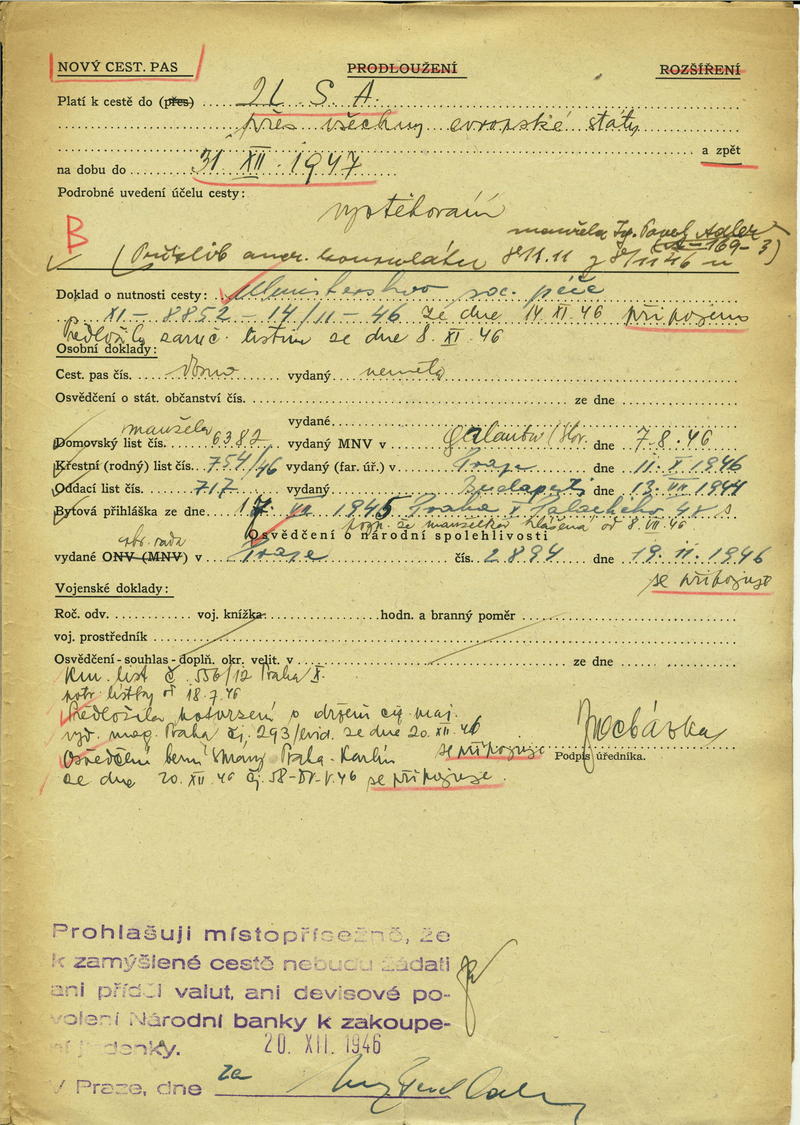 NOVÝ CEST. PAS PRODLOUŽENÍ ROZŠÍŘENÍ
Platí k cestě do (přes) U. S. A.
přes všechny evropské státy
a zpět
na dobu do 31. XII. 1947
Podrobné uvedení účelu cesty:
vystěhování
manžela Ing. Pavel Adler
B
(Příslib amer. konsulátu
Doklad o nutnosti cesty: Ministerstvo soc. péče
XI - 8852 - 14/11 - 46 ze dne 14. XI. 46 připojeno
Předložily listin ze dne 8. XI. 46
Osobní doklady:
Cest. pas čís. vydaný
Osvědčení o stát. občanství čís. ze dne
vydané
manžela
Domovský list čís. 6382 vydaný MNV v Galanta dne 7. 8. 46
Křestní (rodný) list čís. 754/46 vydaný (far. úř.) v Praze dne 11. X 1946
Oddací list čís. 717 vydaný Budapešť dne 13. VII 1944
Bytová přihláška ze dne 17. VII 1945 Praha X Palackého 48
hlášena od 8. VII. 46
Osvědčení o národní spolehlivosti
vydané ONV (MNV) v Praze čís. 2894 dne 19. 11. 1946
se připojuje
Vojenské doklady:
Roč. odv. voj. knížka hodn. a branný poměr
voj. prostředník
Osvědčení-souhlas-doplň. okr. velit. v ze dne
Km. list č. 556/12 Praha X.
potr. lístky od 18. 7. 46
Předložila potvrzení o držení maj.
vyd. mag. Praha čj. 293/evid. ze dne 20. XII. 46
se připojuje
Osvědčení berní správy Praha-Karlín
Podpis úředníka.
ze dne 20. XII. 46 čj. 58-IV-V-46 se připojuje.
Prohlašuji místopřísežně, že
k zamýšlené cestě nebudu žádati
ani příděl valut, ani devisové po-
volení Národní banky k zakoupe-
ní jízdenky. 20. XII. 1946
V Praze, dne za